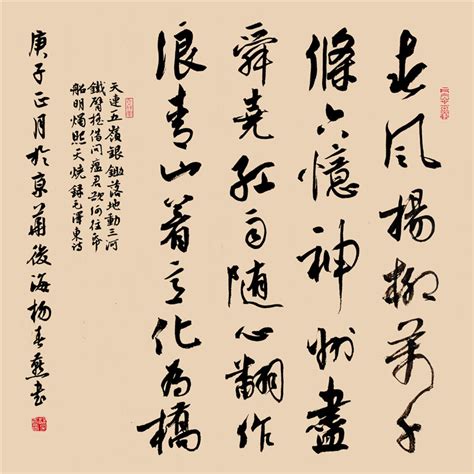 春風楊柳萬千
條六億神州盡
舜堯紅雨随心翻作
浪青山着意化為橋
天連五嶺銀鋤落地動三河
鐵臂搖借問瘟君欲何往帋
船明燭照天燒錄毛澤東詩
庚子正月於京後海楊春燕書